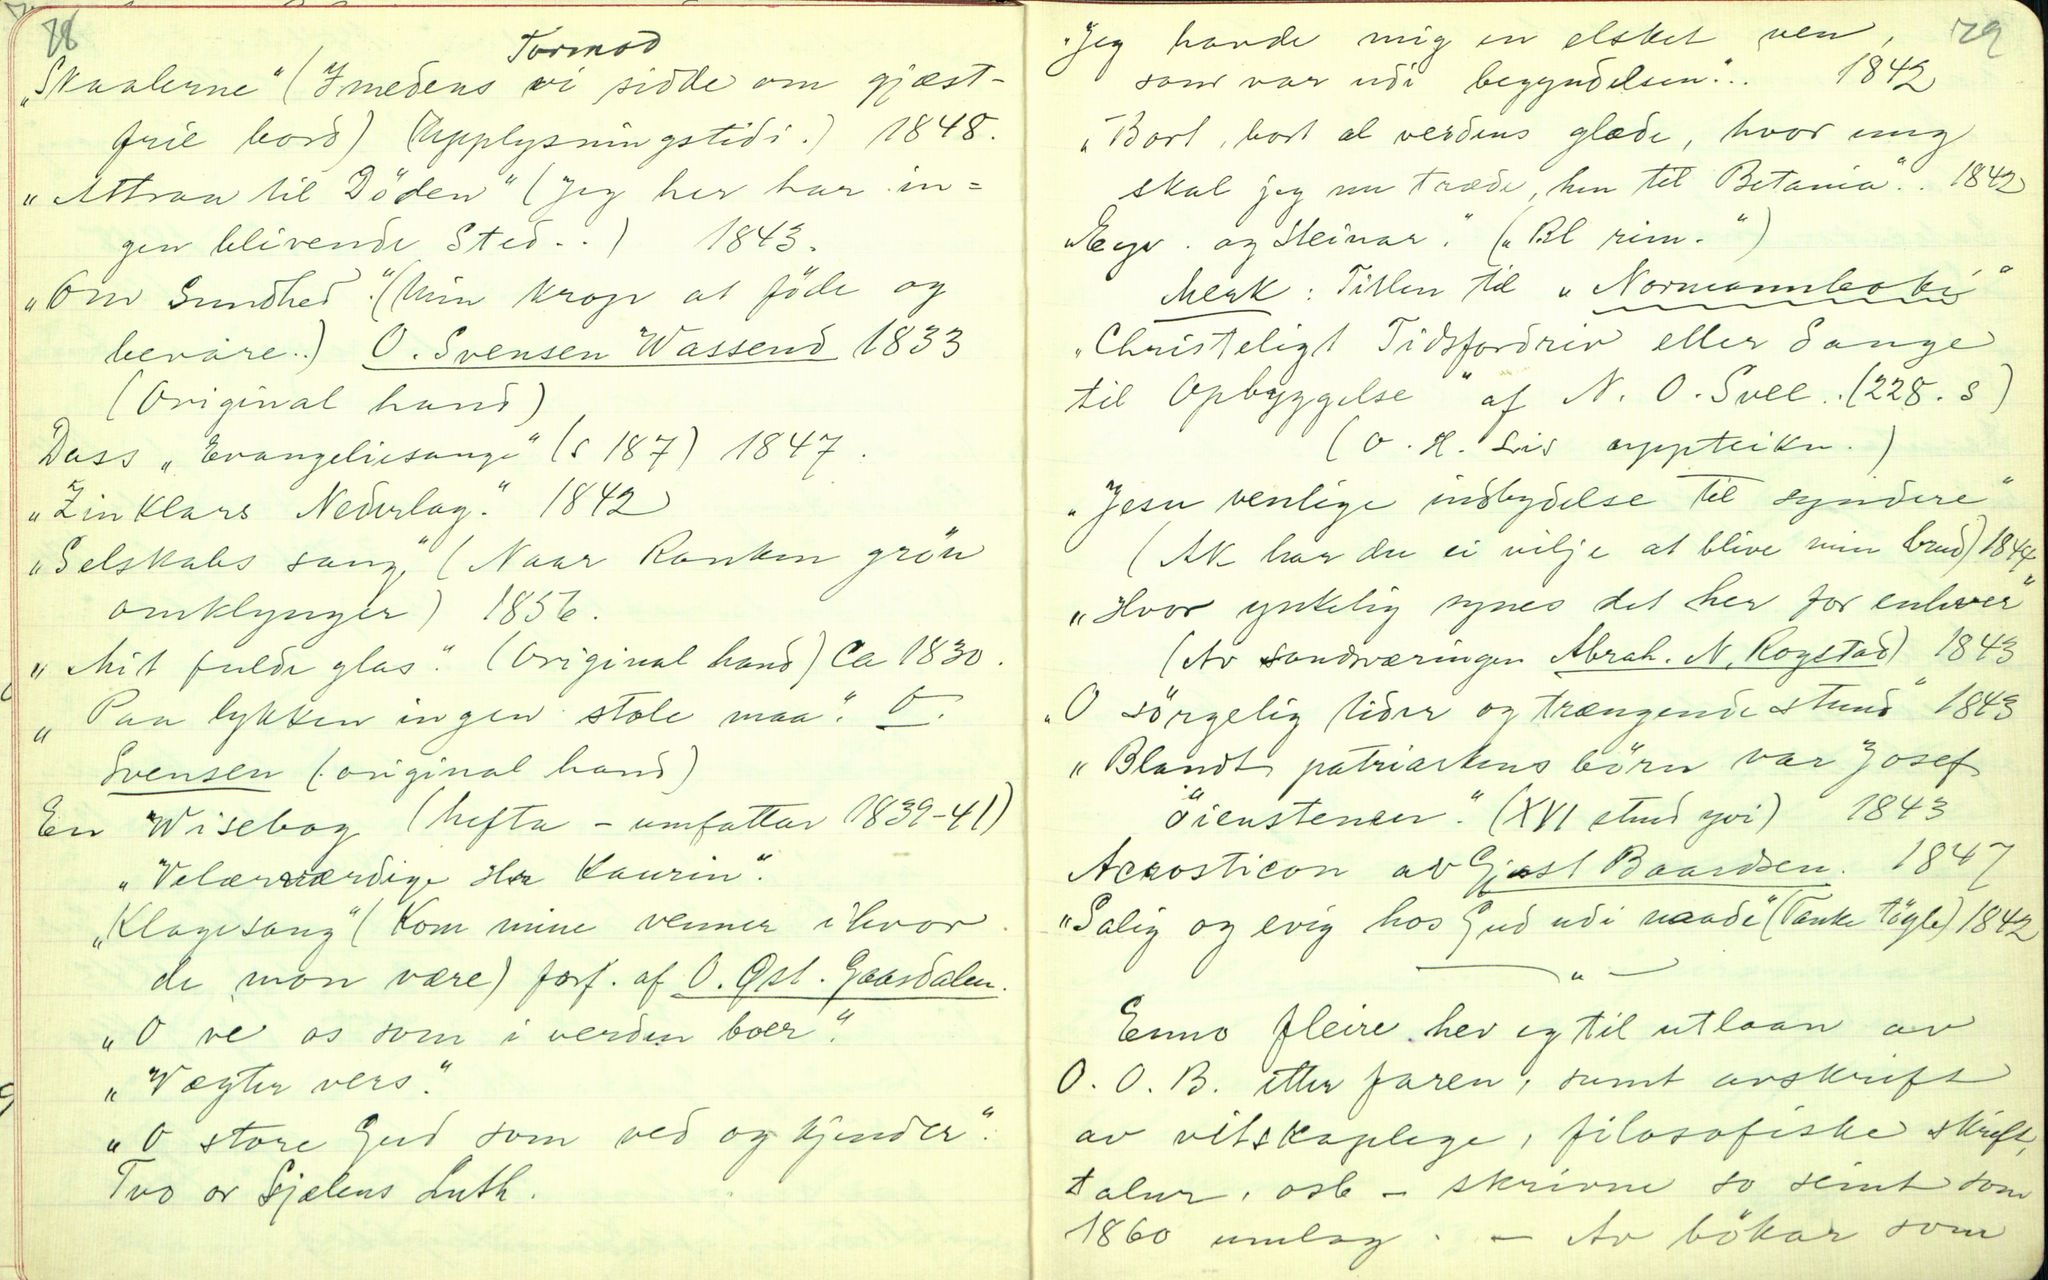 78
Tormod
„Skaalerne" (Imedens vi sidde om gjæst-
frie bord) (Upplysningstidi.) 1848.
„Attraa til Döden" (Jeg her har in=
gen blivende Sted..) 1843.
„Om Sundhed". (Min krop at föde og
bevare..) O. Svensen Wassend 1833
(Original hand)
Dass „Evangeliesange" (s 187) 1847.
„Zinklars Nederlag". 1842
„Selskabs sang" (Naar Ranken grön
omklynger) 1856.
„Mit fulde glas". (Original hand) Ca 1830.
„Paa lykken ingen stole maa". O.
Svensen (original hand)
En Wisebog (hefta - umfattar 1839-41)
„Velærværdige Hr Kaurin".
„Klagesang" (Kom mine venner ihvor
de mon være) forf. af O. Øst. Gaasdalen.
„O ve os som i verden boer".
„Vægter vers".
„O store Gud som ved og kjender".
Tvo or Sjælens Luth.
79
„Jeg havde mig en elsket ven,
som var udi begyndelsen".. 1842
„Bort, bort al verdens glæde, hvor mig
skal jeg nu træde, hen til Betania".. 1842
„Eyv. og Steinar". („Bl rim.")
Merk: Titlen til „Normannboki"
„Christeligt Tidsfordriv eller Sange
til Opbyggelse" af N. O. Svee.. (228. s)
(O. H. Lis uppteikn.)
„Jesu venlige indbydelse til syndere"
(Ak har du ei vilje at blive min brud) 1844
„Hvor ynkelig synes det her for enhver"
(Av sandværingen Abrah. N. Rogstad) 1843
„O sörgelig tider og trængende stund" 1843
„Blandt patriarkens börn var Josef
öienstenen". (XVI stud gvi) 1843
Acrosticon av Gjest Baardsen. 1847
„Salig og evig hos Gud udi naade" (Tanke tögle) 1842
— „ —
Enno fleire hev eg til utlaan av
O. O. B. etter faren, samt avskrift
av vitskaplege, filosofiske skrift,
talur, osb - skrivne so seint som
1860 umlag. - Av bökar som